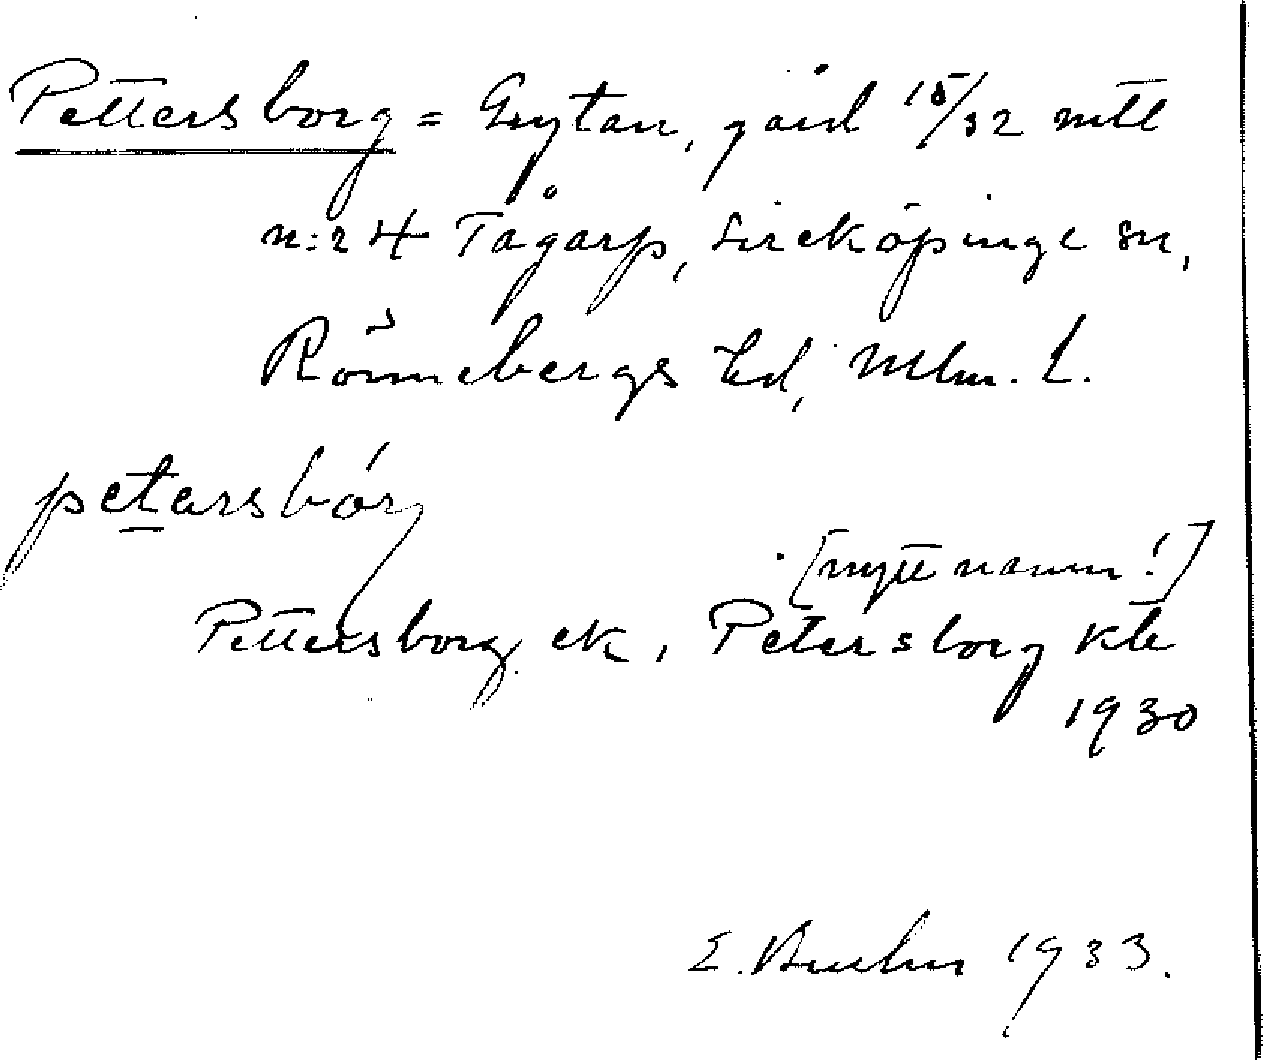 Pettersborg = Grytan, gård 15/32 mtl
n:r 4 Tågarp, Sireköpinge sn,
Rönnebergs hd, Mlm. L.
petarsbórj
[nytt namn!]
Pettersborg ek, Petersborg ktr
1930
E. 1933.